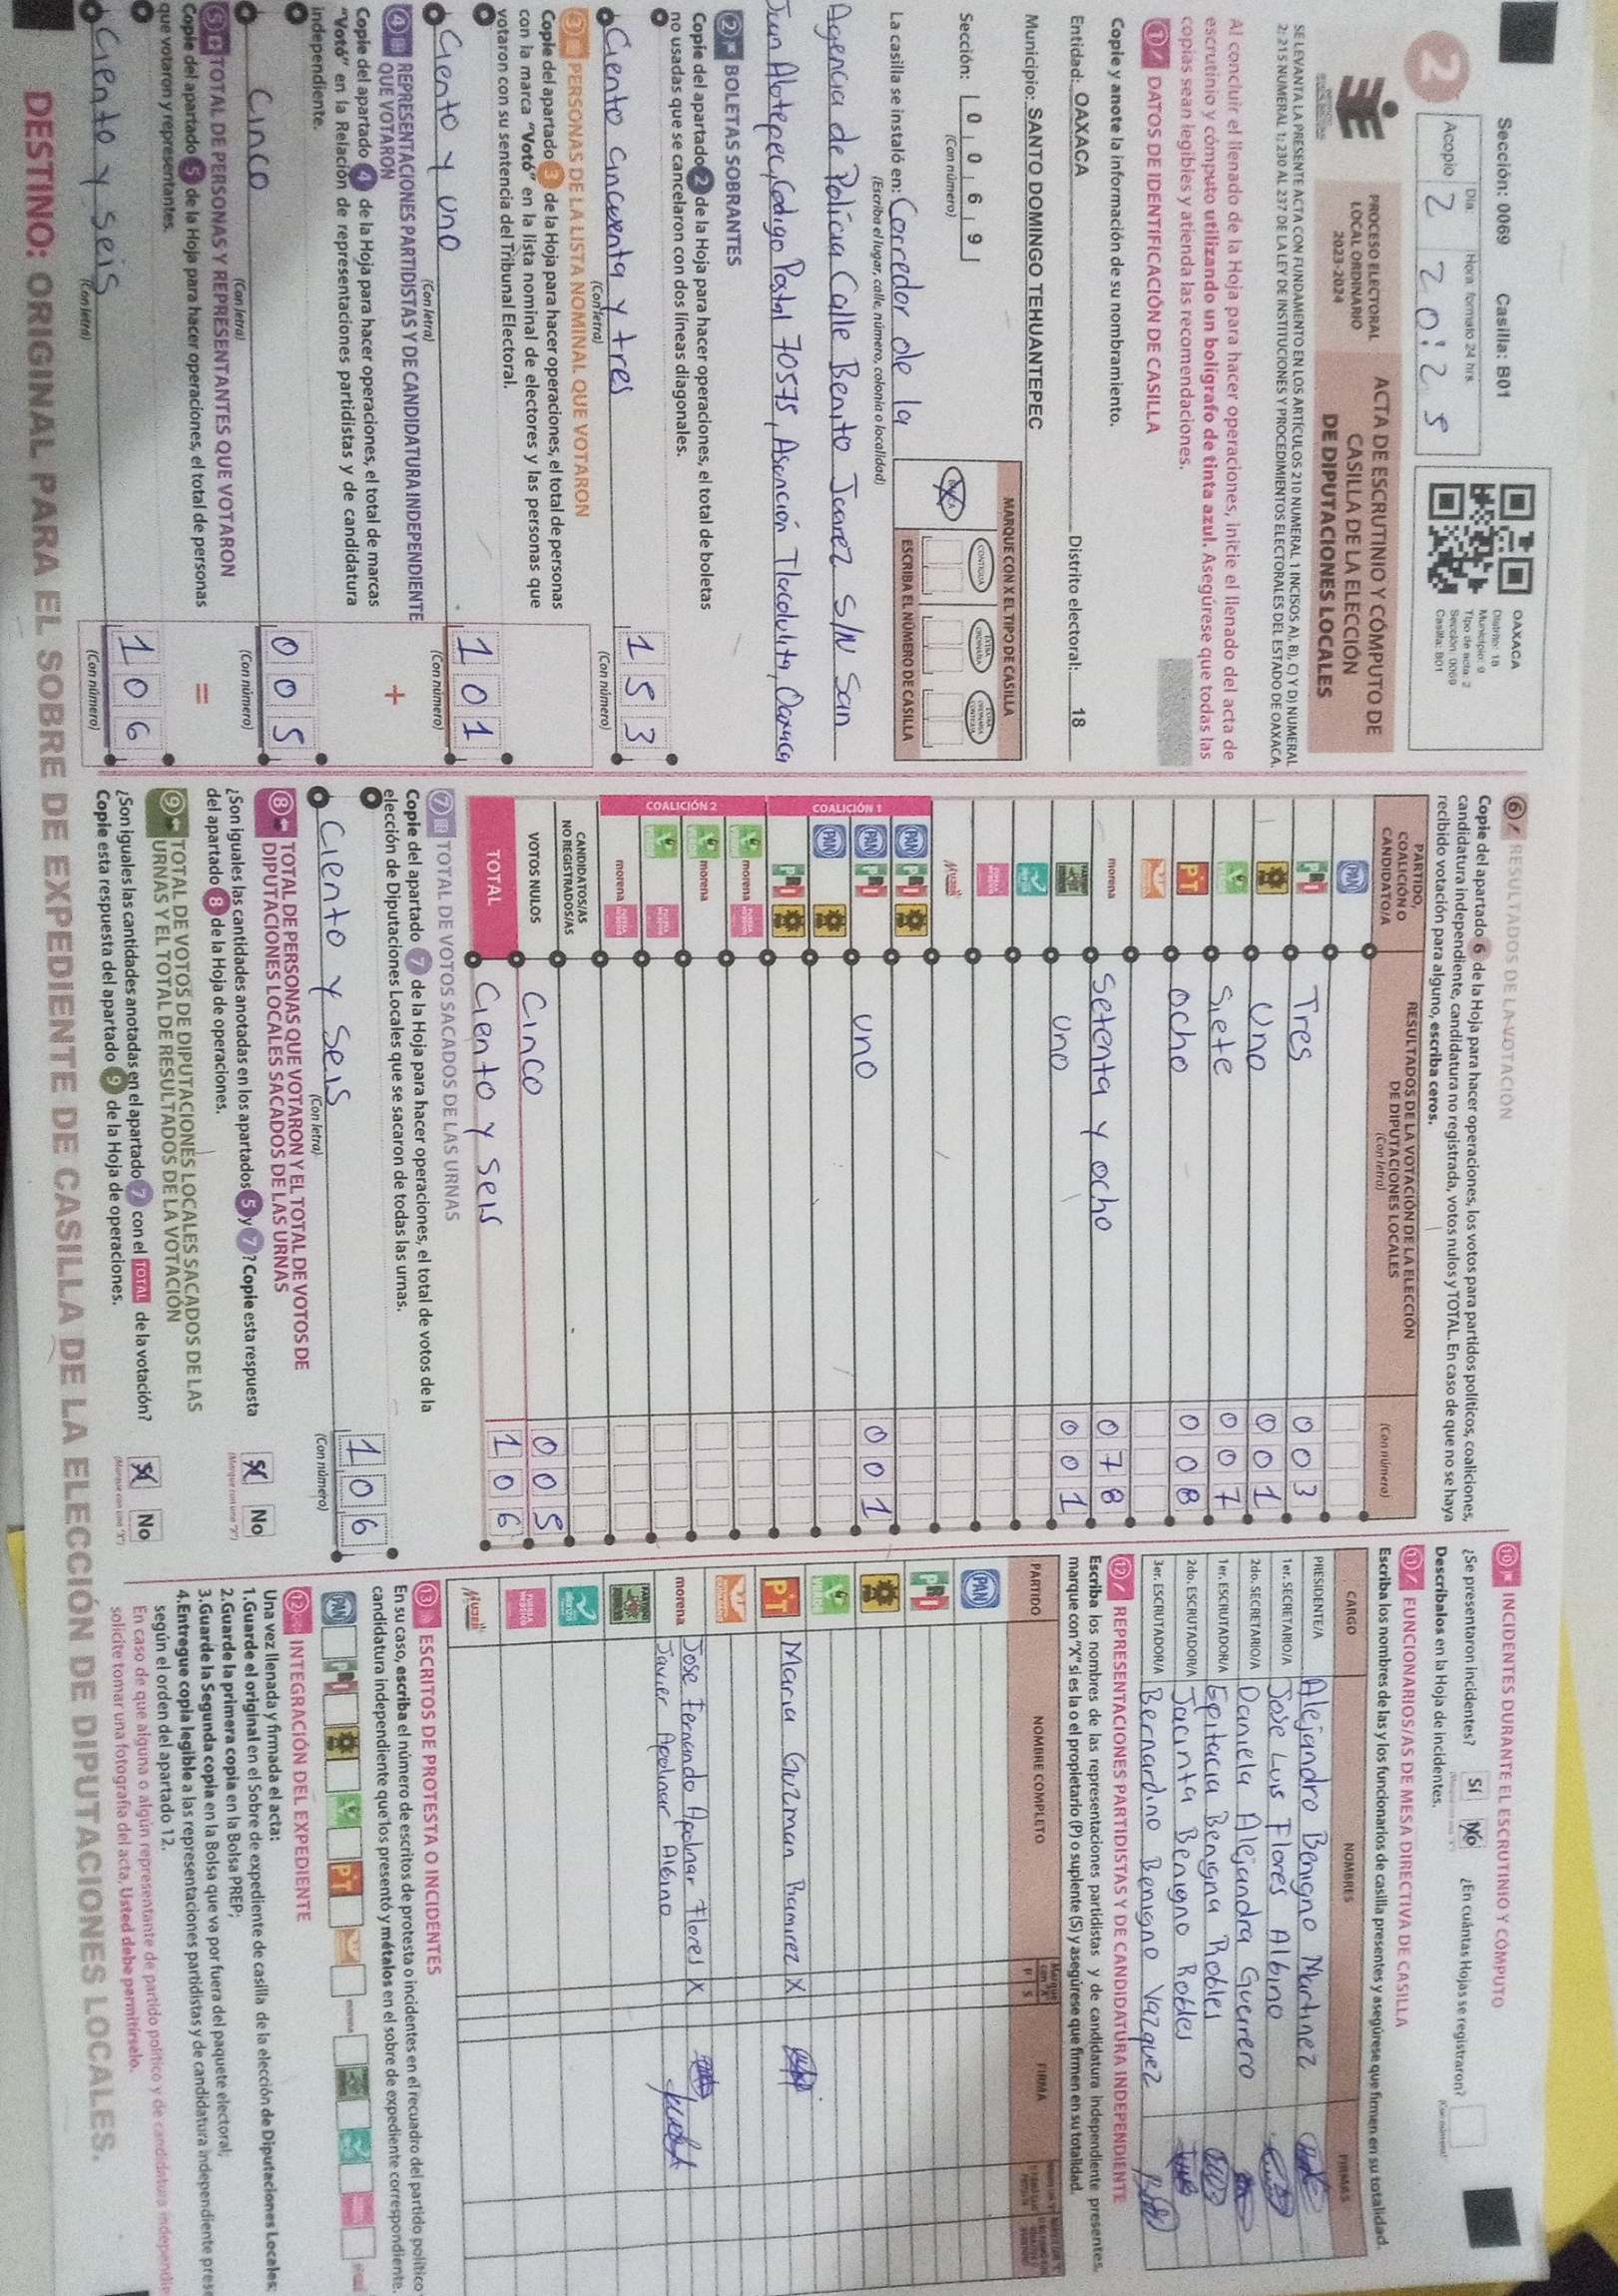 Sección: 0069 Casilla: B01
Día Hora formato 24 hrs.
Acopio 2 20:25
2
OAXACA
Distrito: 18
Municipio: 9
Tipo de acta: 2
Sección: 0069
Casilla: B01
PROCESO ELECTORAL
LOCAL ORDINARIO
2023-2024
ACTA DE ESCRUTINIO Y CÓMPUTO DE
CASILLA DE LA ELECCIÓN
DE DIPUTACIONES LOCALES
SE LEVANTA LA PRESENTE ACTA CON FUNDAMENTO EN LOS ARTÍCULOS 210 NUMERAL 1 INCISOS A), B), C) Y D) NUMERAL
2; 215 NUMERAL 1; 230 AL 237 DE LA LEY DE INSTITUCIONES Y PROCEDIMIENTOS ELECTORALES DEL ESTADO DE OAXACA.
Al concluir el llenado de la Hoja para hacer operaciones, inicie el llenado del acta de
escrutinio y cómputo utilizando un bolígrafo de tinta azul. Asegúrese que todas las
copias sean legibles y atienda las recomendaciones.
1 DATOS DE IDENTIFICACIÓN DE CASILLA
Copie y anote la información de su nombramiento.
Entidad: OAXACA Distrito electoral: 18
Municipio: SANTO DOMINGO TEHUANTEPEC
Sección: 0 0 6 9
(Con número)
MARQUE CON X EL TIPO DE CASILLA
CONTIGUA
ESCRIBA EL NÚMERO DE CASILLA
La casilla se instaló en: Corredor de la
(Escriba el lugar, calle, número, colonia o localidad)
Agencia de Policía Calle Benito Juarez S/N San
Juan Alotepec, Codigo Postal 70575, Asunción Tlacolulita, Oaxaca
2 BOLETAS SOBRANTES
Copie del apartado 2 de la Hoja para hacer operaciones, el total de boletas
no usadas que se cancelaron con dos líneas diagonales.
Ciento cincuenta y tres 1 5 3
(Con letra) (Con número)
3 PERSONAS DE LA LISTA NOMINAL QUE VOTARON
Copie del apartado 3 de la Hoja para hacer operaciones, el total de personas
con la marca "Votó" en la lista nominal de electores y las personas que
votaron con su sentencia del Tribunal Electoral.
Ciento y uno 1 0 1
(Con letra) (Con número)
4 REPRESENTACIONES PARTIDISTAS Y DE CANDIDATURA INDEPENDIENTE
QUE VOTARON
+
Copie del apartado 4 de la Hoja para hacer operaciones, el total de marcas
"Votó" en la Relación de representaciones partidistas y de candidatura
independiente.
Cinco 0 0 5
(Con letra) (Con número)
5 TOTAL DE PERSONAS Y REPRESENTANTES QUE VOTARON
=
Copie del apartado 5 de la Hoja para hacer operaciones, el total de personas
que votaron y representantes.
Ciento y seis 1 0 6
(Con letra) (Con número)
6 RESULTADOS DE LA VOTACIÓN
Copie del apartado 6 de la Hoja para hacer operaciones, los votos para partidos políticos, coaliciones,
candidatura independiente, candidatura no registrada, votos nulos y TOTAL. En caso de que no se haya
recibido votación para alguno, escriba ceros.
PARTIDO,
COALICIÓN O
CANDIDATO/A
RESULTADOS DE LA VOTACIÓN DE LA ELECCIÓN
DE DIPUTACIONES LOCALES
(Con letra)
(Con número)
PAN
PRI Tres 0 0 3
Uno 0 0 1
Siete 0 0 7
PT ocho 0 0 8
morena Setenta y ocho 0 7 8
uno 0 0 1
COALICIÓN 1
PAN PRI
PAN PRI uno 0 0 1
PAN
PRI
COALICIÓN 2
morena
morena
morena
CANDIDATOS/AS
NO REGISTRADOS/AS
VOTOS NULOS Cinco 0 0 5
TOTAL Ciento y seis 1 0 6
7 TOTAL DE VOTOS SACADOS DE LAS URNAS
Copie del apartado 7 de la Hoja para hacer operaciones, el total de votos de la
elección de Diputaciones Locales que se sacaron de todas las urnas.
Ciento y seis 1 0 6
(Con letra) (Con número)
8 TOTAL DE PERSONAS QUE VOTARON Y EL TOTAL DE VOTOS DE
DIPUTACIONES LOCALES SACADOS DE LAS URNAS
¿Son iguales las cantidades anotadas en los apartados 5 y 7? Copie esta respuesta
del apartado 8 de la Hoja de operaciones.
Sí No
9 TOTAL DE VOTOS DE DIPUTACIONES LOCALES SACADOS DE LAS
URNAS Y EL TOTAL DE RESULTADOS DE LA VOTACIÓN
¿Son iguales las cantidades anotadas en el apartado 7 con el TOTAL de la votación?
Copie esta respuesta del apartado 9 de la Hoja de operaciones.
Sí No
10 INCIDENTES DURANTE EL ESCRUTINIO Y CÓMPUTO
¿Se presentaron incidentes? Sí No ¿En cuántas Hojas se registraron?
(Con número)
Descríbalos en la Hoja de incidentes.
11 FUNCIONARIOS/AS DE MESA DIRECTIVA DE CASILLA
Escriba los nombres de las y los funcionarios de casilla presentes y asegúrese que firmen en su totalidad.
CARGO NOMBRES FIRMAS
PRESIDENTE/A Alejandro Benigno Martinez
1er. SECRETARIO/A Jose Luis Flores Albino
2do. SECRETARIO/A Daniela Alejandra Guerrero
1er. ESCRUTADOR/A Epitacia Benigna Robles
2do. ESCRUTADOR/A Jacinta Benigno Robles
3er. ESCRUTADOR/A Bernardino Benigno Vazquez
12 REPRESENTACIONES PARTIDISTAS Y DE CANDIDATURA INDEPENDIENTE
Escriba los nombres de las representaciones partidistas y de candidatura independiente presentes,
marque con "X" si es la o el propietario (P) o suplente (S) y asegúrese que firmen en su totalidad.
PARTIDO NOMBRE COMPLETO P S FIRMA
PAN
PRI
PT Maria Guzman Ramirez X
morena Jose Fernando Apolinar Flores X
Javier Apolinar Albino
13 ESCRITOS DE PROTESTA O INCIDENTES
En su caso, escriba el número de escritos de protesta o incidentes en el recuadro del partido político
candidatura independiente que los presentó y métalos en el sobre de expediente correspondiente.
PAN PRI PT morena
12 INTEGRACIÓN DEL EXPEDIENTE
Una vez llenada y firmada el acta:
1.Guarde el original en el Sobre de expediente de casilla de la elección de Diputaciones Locales;
2.Guarde la primera copia en la Bolsa PREP;
3.Guarde la Segunda copia en la Bolsa que va por fuera del paquete electoral;
4.Entregue copia legible a las representaciones partidistas y de candidatura independiente
según el orden del apartado 12.
En caso de que alguna o algún representante de partido político y de candidatura
solicite tomar una fotografía del acta, Usted debe permitírselo.
DESTINO: ORIGINAL PARA EL SOBRE DE EXPEDIENTE DE CASILLA DE LA ELECCIÓN DE DIPUTACIONES LOCALES.